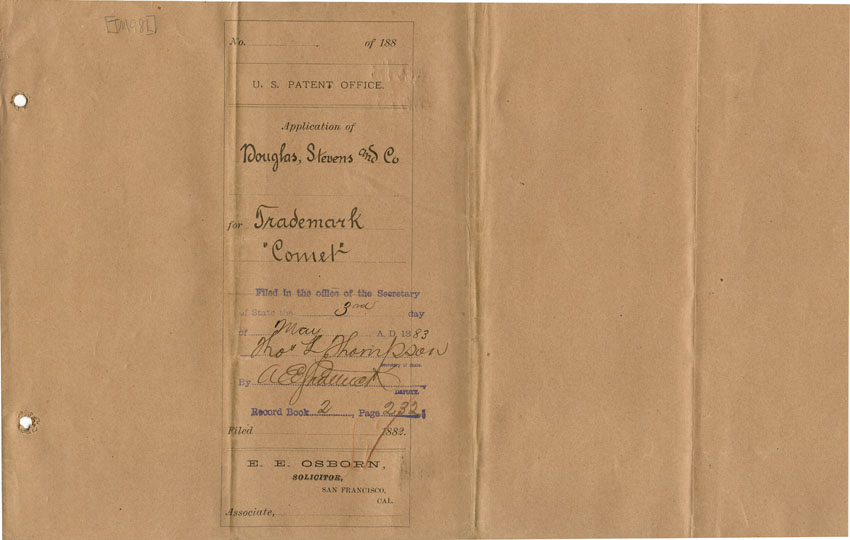 No. of 188
U. S. PATENT OFFICE.
Application of
Douglas, Stevens and Co
for Trademark
"Comet"
Filed in the office of the Secretary
of State the 3rd day
of May A. D. 1883
Thos L Thompson
Secretary of State
By A E
DEPUTY.
Record Book 2, Page 232
Filed 1882.
E. E. OSBORN,
SOLICITOR,
SAN FRANCISCO,
CAL.
Associate,